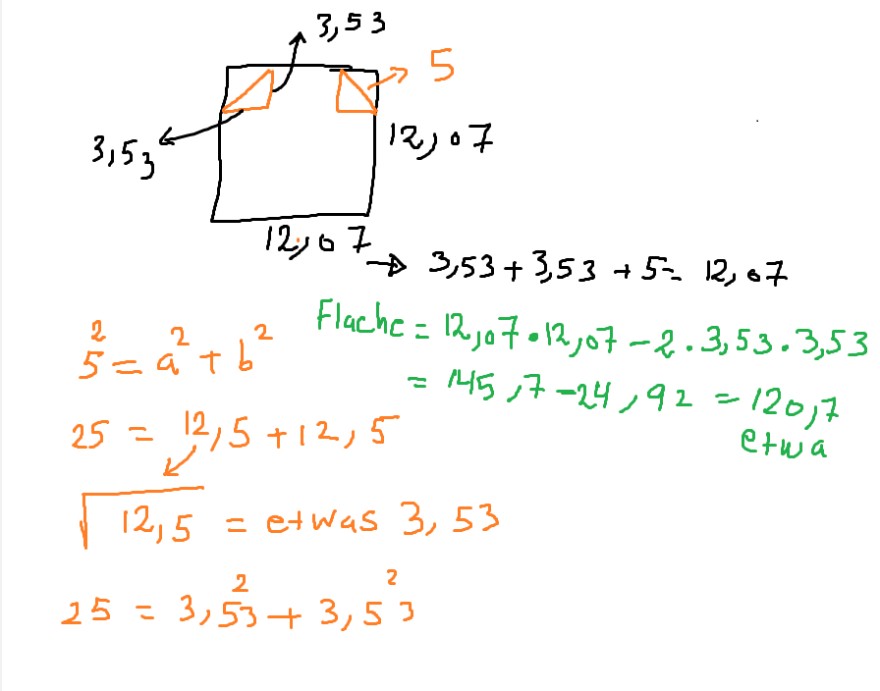 3,53
5
3,53
12,07
12,07
→ 3,53 + 3,53 + 5 = 12,07
Flache = 12,07 · 12,07 - 2 . 3,53 . 3,53
= 145,7 - 24,92 = 120,7
etwa
5² = a² + b²
25 = 12,5 + 12,5
√12,5 = etwas 3,53
25 = 3,53² + 3,53²